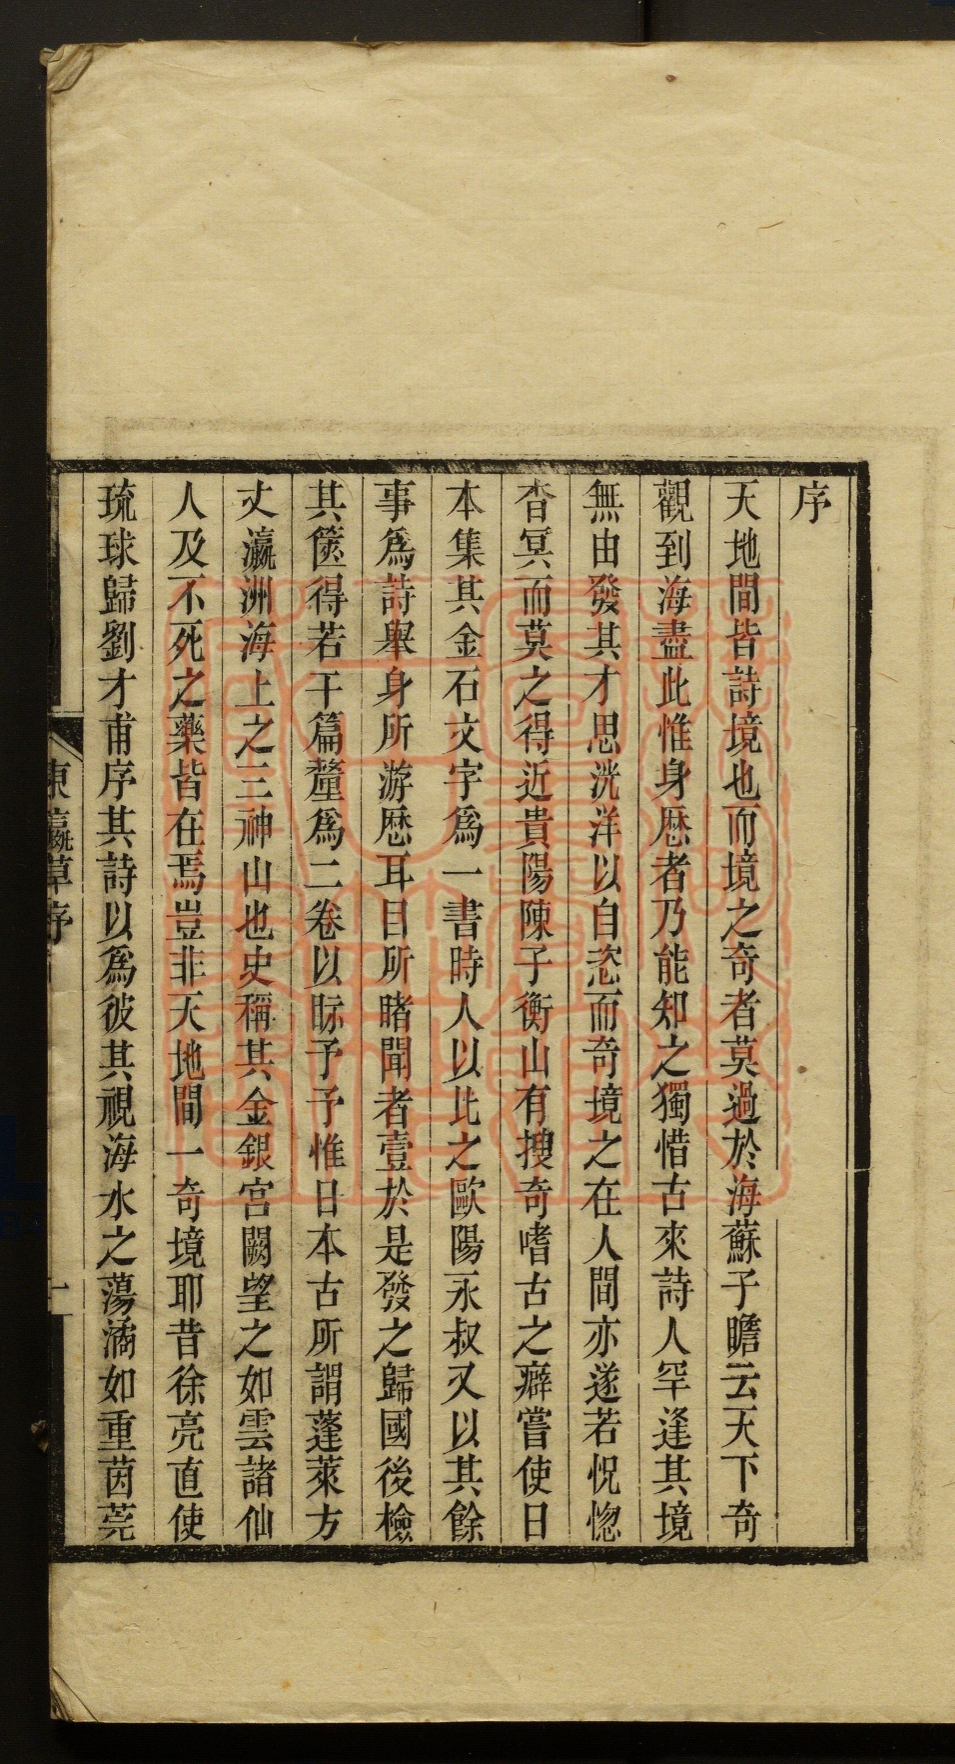 序
天地間皆詩境也而境之奇者莫過於海蘇子瞻云天下奇
觀到海盡此惟身歷者乃能知之獨惜古來詩人罕逢其境
無由發其才思洸洋以自恣而奇境之在人間亦遂若怳惚
杳冥而莫之得近貴陽陳子衡山有搜奇嗜古之癖嘗使日
本集其金石文字爲一書時人以比之歐陽永叔又以其餘
事爲詩舉身所游歷耳目所睹聞者壹於是發之歸國後檢
其篋得若干篇釐爲二卷以眎予予惟日本古所謂蓬萊方
丈瀛洲海上之三神山也史稱其金銀宮闕望之如雲諸仙
人及不死之藥皆在焉豈非天地間一奇境耶昔徐亮直使
琉球歸劉才甫序其詩以爲彼其視海水之蕩潏如重茵莞
東瀛草序
一